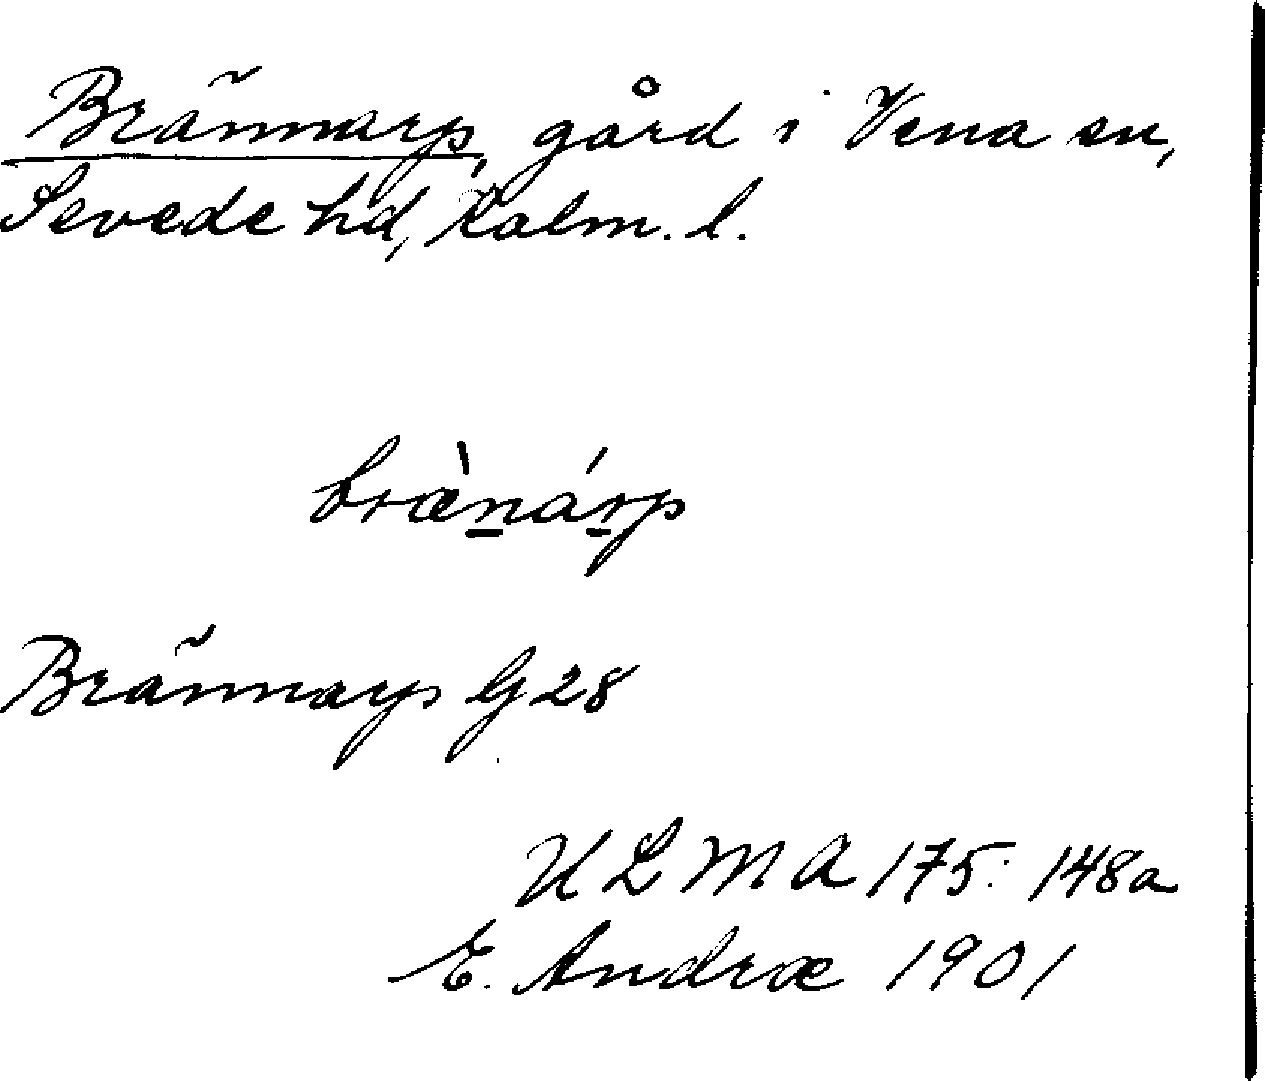 Brännarp, gård i Vena sn,
Sevede hd, Kalm. l.
bræ̀n̲ár̲p
Brännarp G 28
ULMA 175: 148a
E. Andræ 1901